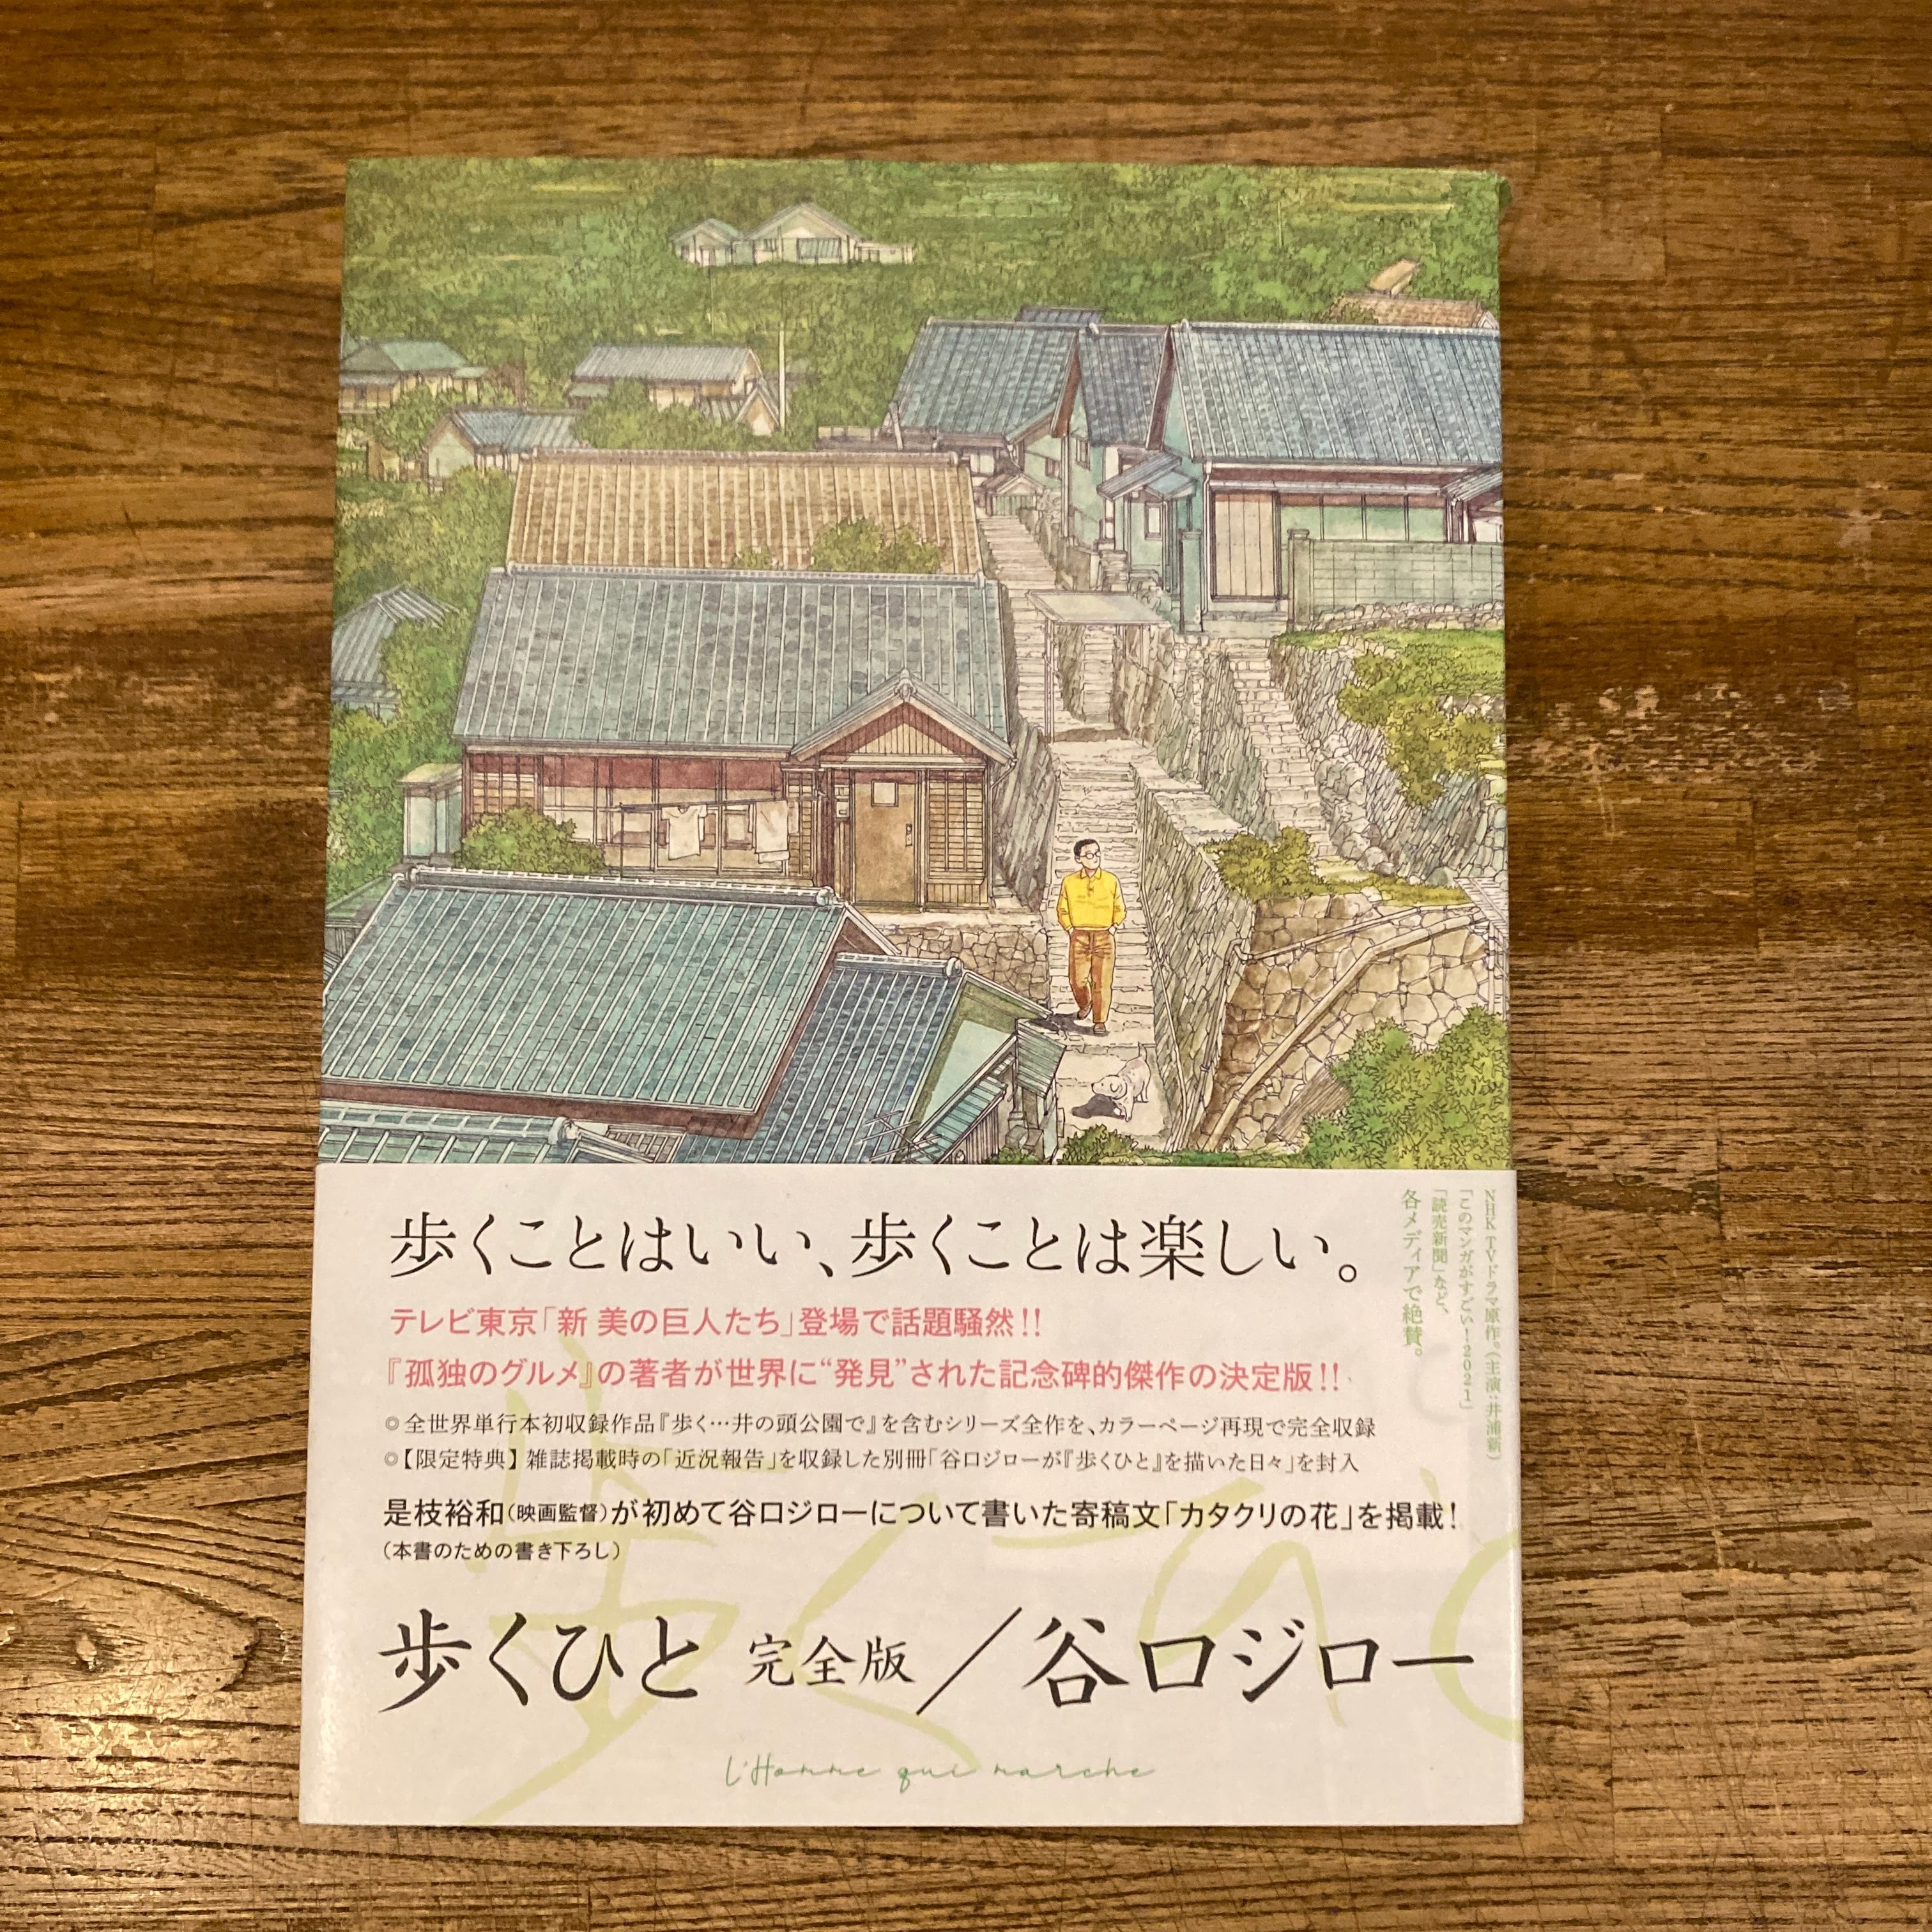 歩くことはいい、歩くことは楽しい。
テレビ東京「新 美の巨人たち」登場で話題騒然!!
『孤独のグルメ』の著者が世界に“発見”された記念碑的傑作の決定版!!
◎全世界単行本初収録作品『歩く…井の頭公園で』を含むシリーズ全作を、カラーページ再現で完全収録
◎【限定特典】雑誌掲載時の「近況報告」を収録した別冊「谷口ジローが『歩くひと』を描いた日々」を封入
是枝裕和(映画監督)が初めて谷口ジローについて書いた寄稿文「カタクリの花」を掲載!
(本書のための書き下ろし)
NHK TVドラマ原作。(主演:井浦新)
「このマンガがすごい!2021」
「読売新聞」など、
各メディアで絶賛。
歩くひと 完全版/谷口ジロー
L'Homme qui marche